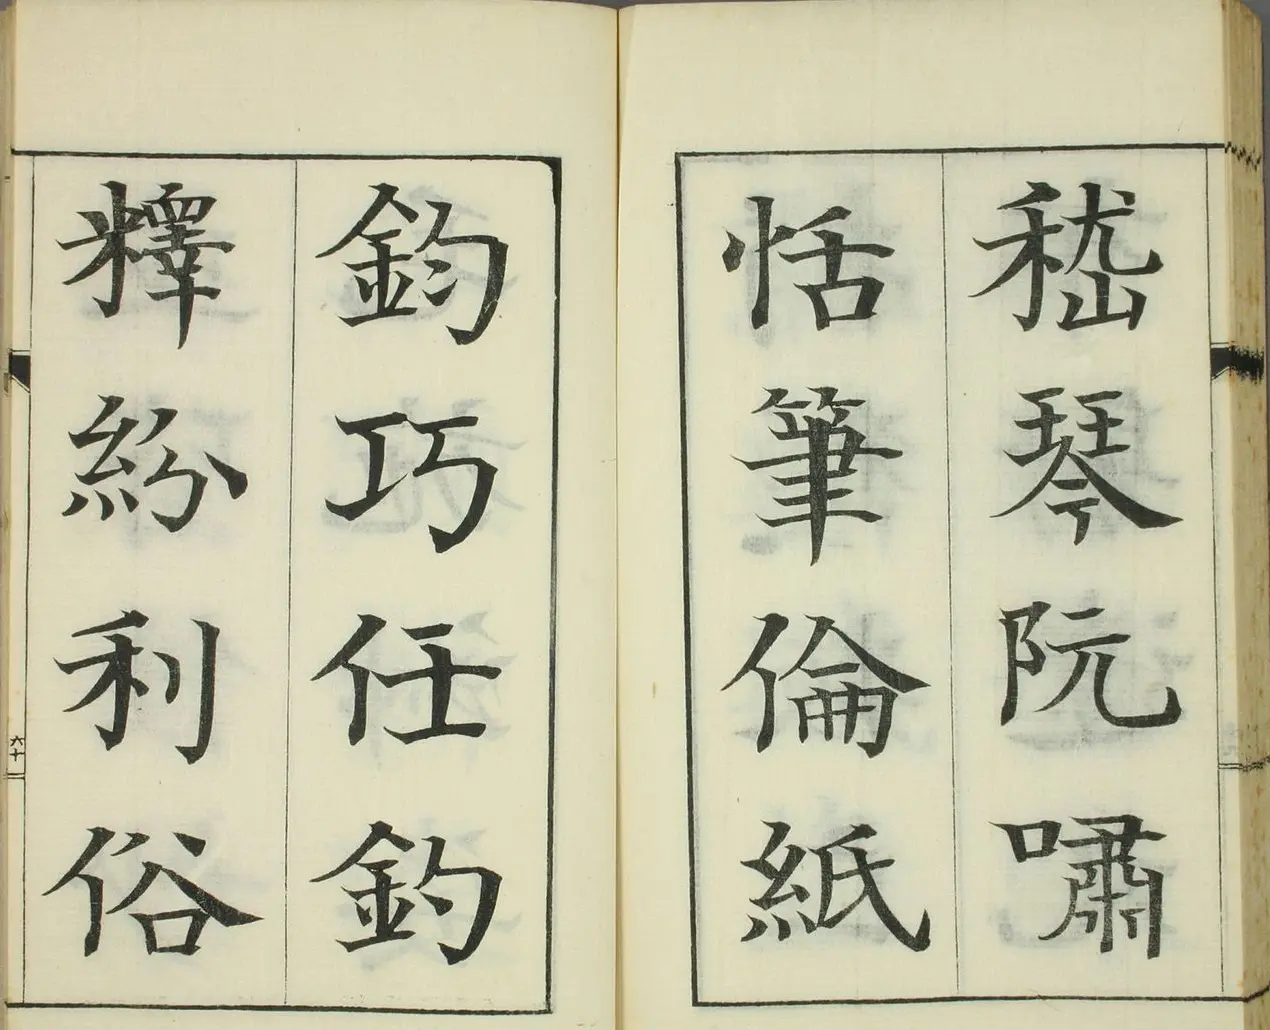 嵇琴阮嘯
恬筆倫紙
鈞巧任釣
釋紛利俗
六十